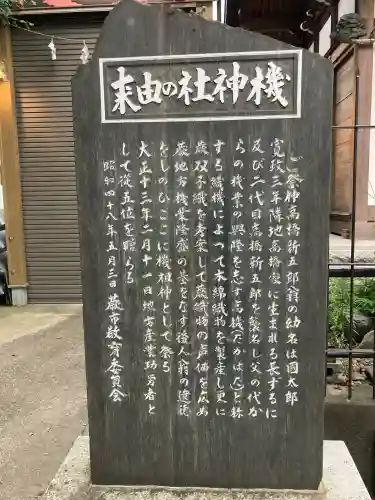 機神社の由来
ご祭神高橋新五郎翁の幼名は国太郎
寛政三年隣地高橋家に生まれる長ずるに
及び二代目高橋新五郎を襲名し父の代か
らの機業の興隆を志す高機(たかはた)と称
する織機によって木綿織物を製産し更に
蕨双子織を考案して蕨織物の声価を広め
蕨地方機業隆盛の基をなす後人翁の遺徳
をしのびここに機祖神として祭る
大正十三年二月十一日地方産業功労者と
して従五位を贈らる
昭和四十八年五月三日 蕨市教育委員会